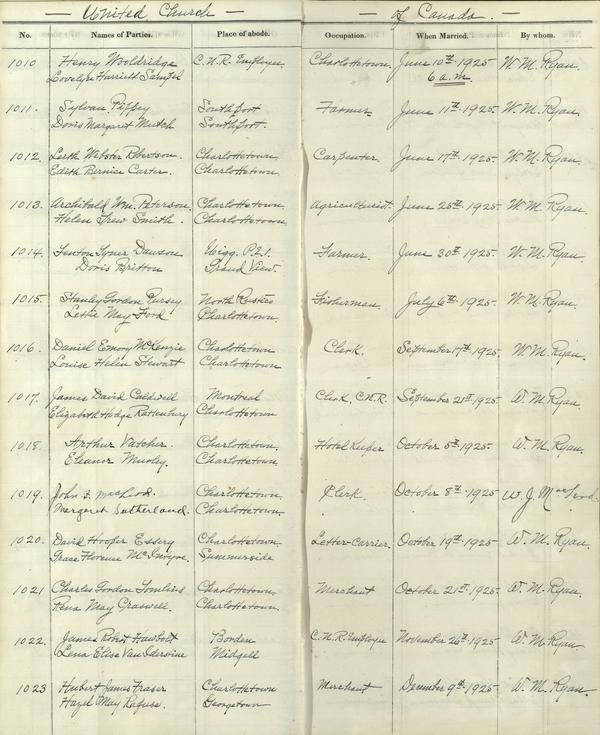 — United Church — — of Canada. —
No. Names of Parties. Place of abode. Occupation. When Married. By whom.
1010 Henry Wooldridge C.N.R. Employee Charlottetown June 10th 1925 W. M. Ryan.
Lovelyn Harriett Sample 6 a.m.
1011. Sylvan Southport Farmer June 11th 1925 W. M. Ryan.
Doris Margaret Mutch Southport.
1012. Leith Webster Robertson. Charlottetown Carpenter June 17th 1925. W. M. Ryan.
Edith Bernice Carter. Charlottetown
1013. Archibald Wm. Peterson. Charlottetown Agriculturist. June 25th 1925 W. M. Ryan.
Helen Trew Smith. Charlottetown
1014. Fenton Lyner Dawson Wigg. P.E.I. Farmer. June 30th 1925. W. M. Ryan.
Doris Britton Grand View.
1015. Stanley Gordon Pursey North Rustico Fisherman July 6th 1925. W. M. Ryan.
Leslie May Ford Charlottetown
1016. Daniel Emory McKenzie Charlottetown Clerk. September 17th 1925. W. M. Ryan.
Louise Helen Stewart Charlottetown
1017. James David Caldwell Montreal Clerk, C.N.R. September 21st 1925 W. M. Ryan.
Elizabeth Hodge Rattenbury Charlottetown
1018. Arthur Vatcher. Charlottetown Hotel Keeper October 5th 1925 W. M. Ryan.
Eleanor Murley. Charlottetown
1019. John F. MacLeod. Charlottetown Clerk October 8th 1925 W. J. MacLeod.
Margaret Sutherland Charlottetown
1020. David Hooper Essery Charlottetown Letter-Carrier. October 19th 1925 W. M. Ryan.
Grace Florence McIntyre. Summerside
1021 Charles Gordon Tomlins Charlottetown Merchant October 21st 1925. W. M. Ryan.
Rena May Craswell. Charlottetown.
1022. James Robert Hawbolt Borden C.N.R. Employee November 26th 1925 W. M. Ryan
Lena Elise Van Iderstine Midgell
1023 Hubert James Fraser Charlottetown Merchant December 9th 1925 W. M. Ryan.
Hazel May Rafuse. Georgetown